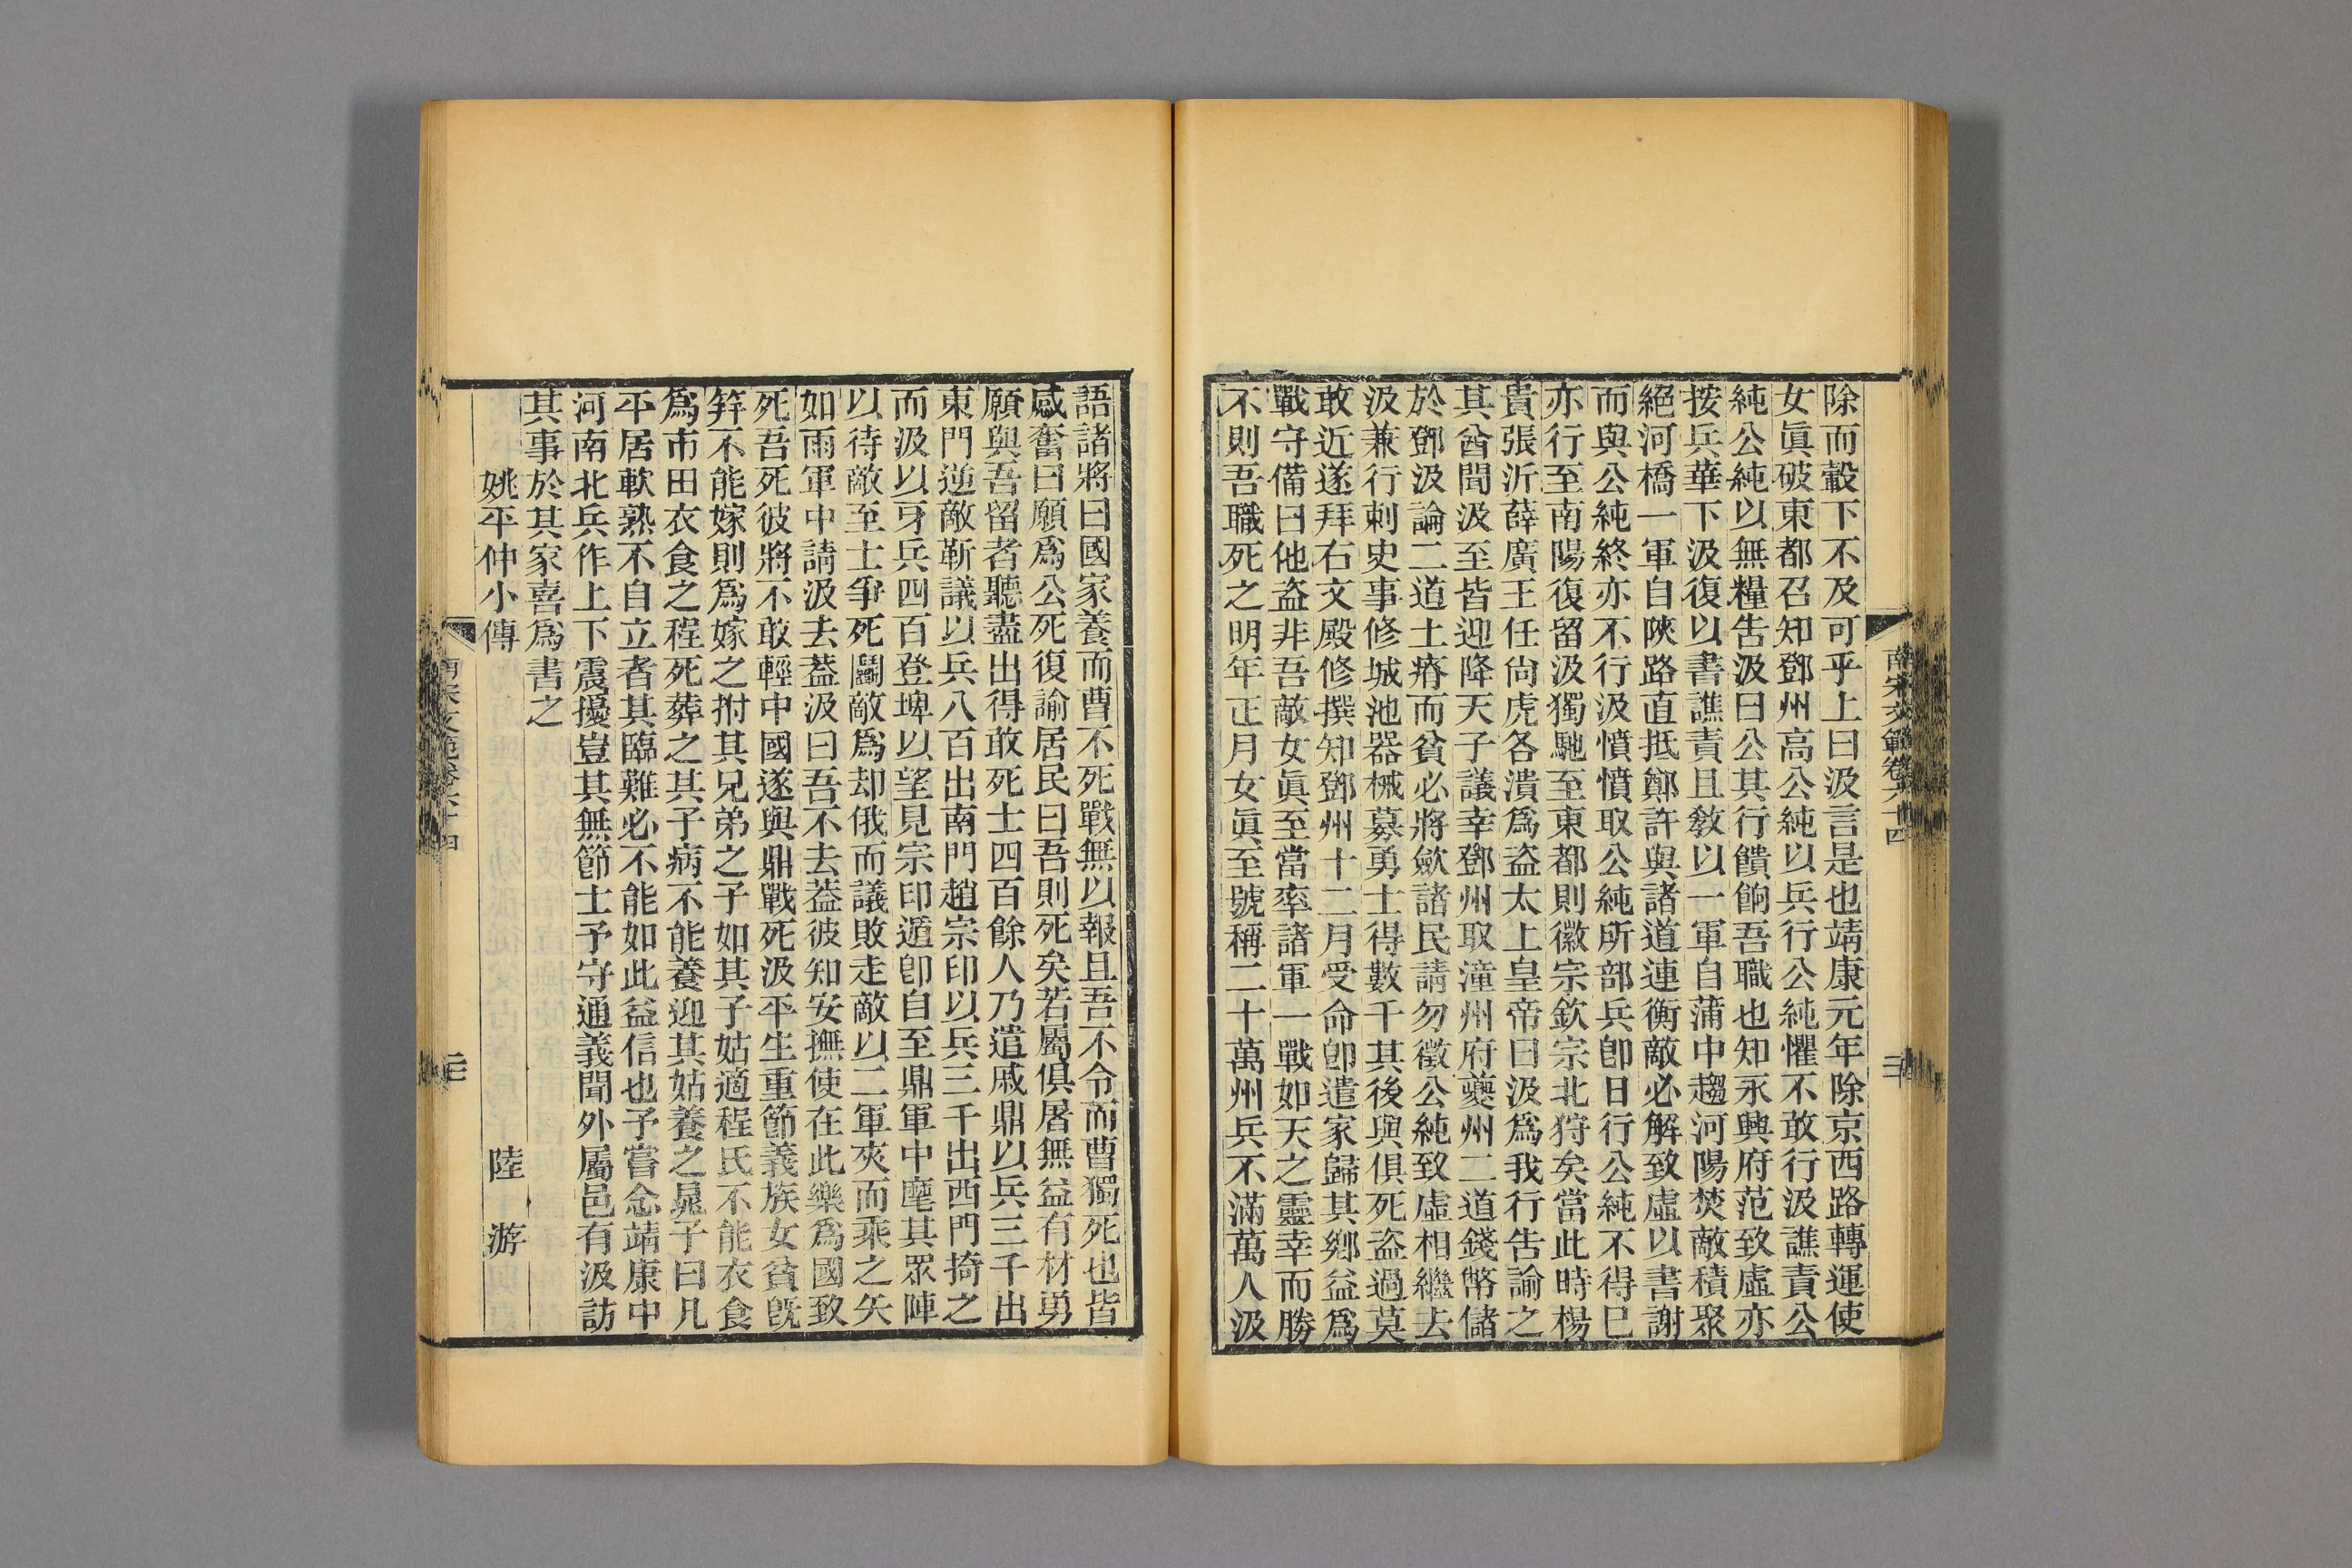 除而轂下不及可乎上曰汲言是也靖康元年除京西路轉運使
女眞破東都召知鄧州高公純以兵行公純懼不敢行汲譙責公
純公純以無糧告汲曰公其行饋餉吾職也知永興府范致虛亦
按兵華下汲復以書譙責且敎以一軍自蒲中趨河陽焚敵積聚
絕河橋一軍自陝路直抵鄭許與諸道連衡敵必解致虛以書謝
而與公純終亦不行汲憤憤取公純所部兵卽日行公純不得已
亦行至南陽復留汲獨馳至東都則徽宗欽宗北狩矣當此時楊
貴張沂薛廣王任尙虎各潰爲盗太上皇帝曰汲爲我行告諭之
其酋聞汲至皆迎降天子議幸鄧州取潼州府夔州二道錢幣儲
於鄧汲論二道土瘠而貧必將歛諸民請勿徵公純致虛相繼去
汲兼行刺史事修城池器械募勇士得數千其後與俱死盗過莫
敢近遂拜右文殿修撰知鄧州十二月受命卽遣家歸其鄕益爲
戰守備曰他盗非吾敵女眞至當率諸軍一戰如天之靈幸而勝
不則吾職死之明年正月女眞至號稱二十萬州兵不滿萬人汲
南宋文範卷六十四
語諸將曰國家養而曹不死戰無以報且吾不令而曹獨死也皆
感奮曰願爲公死復諭居民曰吾則死矣若屬俱屠無益有材勇
願與吾留者聽盡出得敢死士四百餘人乃遣戚鼎以兵三千出
東門逆敵靳議以兵八百出南門趙宗印以兵三千出西門掎之
而汲以牙兵四百登埤以望見宗印遁卽自至鼎軍中麾其眾陣
以待敵至士爭死鬭敵爲却俄而議敗走敵以二軍夾而乘之矢
如雨軍中請汲去葢汲曰吾不去葢彼知安撫使在此樂爲國致
死吾死彼將不敢輕中國遂與鼎戰死汲平生重節義族女貧旣
笄不能嫁則爲嫁之拊其兄弟之子如其子姑適程氏不能衣食
爲市田衣食之程死葬之其子病不能養迎其姑養之晁子曰凡
平居軟熟不自立者其臨難必不能如此益信也予嘗念靖康中
河南北兵作上下震擾豈其無節士予守通義聞外屬邑有汲訪
其事於其家喜爲書之
姚平仲小傳　陸游
南宋文範卷六十四